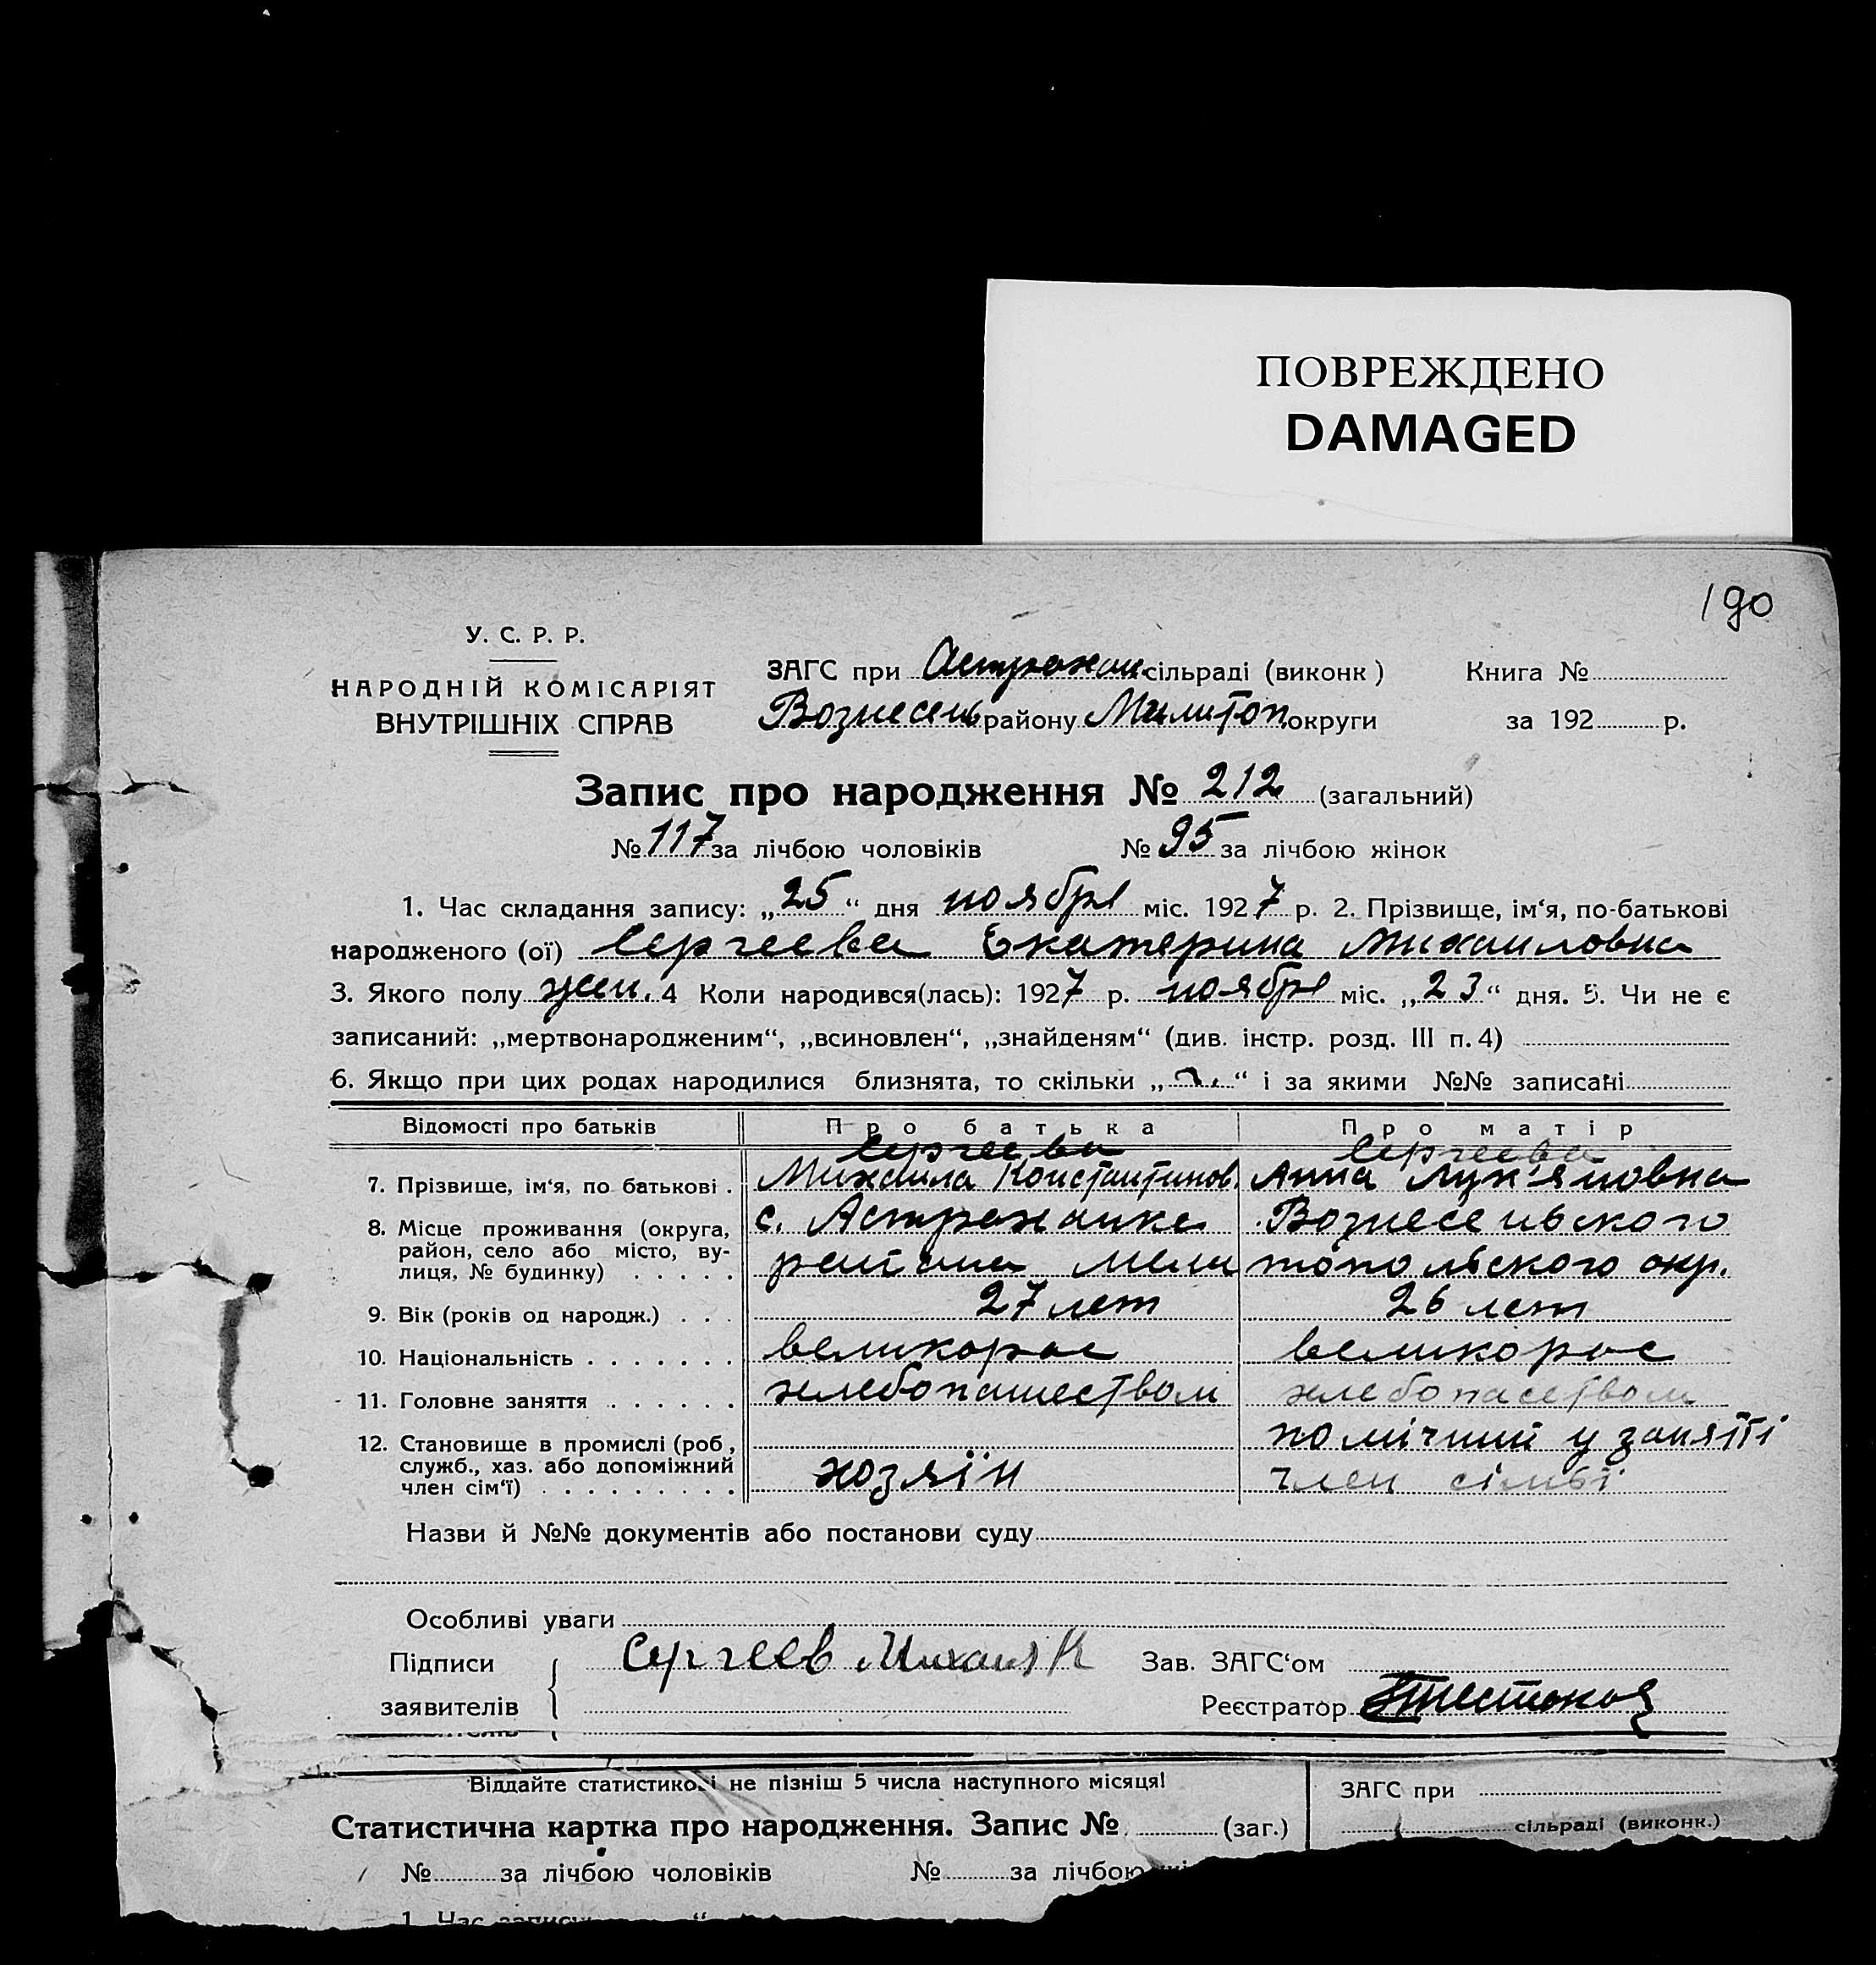 ПОВРЕЖДЕНО
DAMAGED
190
У. С. Р. Р.
НАРОДНІЙ КОМІСАРІЯТ
ВНУТРІШНІХ СПРАВ
ЗАГС при Астрахан. сільраді (виконк)
Вознесень району Милитоп округи
Книга №
за 192 р.
Запис про народження № 212 (загальний)
№ 117 за лічбою чоловіків № 95 за лічбою жінок
1. Час складання запису: „25“ дня ноября міс. 1927 р. 2. Прізвище, ім‘я, по-батькові
народженого (ої) Сергеева Екатерина Михаиловна
3. Якого полу жен. 4 Коли народився(лась): 1927 р. ноября міс. „23“ дня. 5. Чи не є
записаний: „мертвонародженим“, „всиновлен“, „знайденям“ (див. інстр. розд. III п. 4)
6. Якщо при цих родах народилися близнята, то скільки „ “ і за якими №№ записані
Відомості про батьків Про батька Про матір
Сергеева Сергеева
7. Прізвище, ім‘я, по батькові . Михаила Константинов. Анна Лук‘яновна
8. Місце проживання (округа, с. Астраханке Вознесеньского
район, село або місто, ву-
лиця, № будинку) . . . . . району Мели топольского окр.
9. Вік (років од народж.) . . . 27 лет 26 лет
10. Національність . . . . . . . великорос великорос
11. Головне заняття . . . . . . хлебопашеством хлебопаством
12. Становище в промислі (роб, помічний у заняттї
служб., хаз. або допоміжний
член сім‘ї) . . . . . . . . . хозяїн член сімьї
Назви й №№ документів або постанови суду
Особливі уваги
Підписи Сергеев Михаил К Зав. ЗАГС‘ом
заявителів Реєстратор
Віддайте статистикові не пізніш 5 числа наступного місяця!
Статистична картка про народження. Запис № (заг.)
ЗАГС при
сільраді (виконк.)
№ за лічбою чоловіків № за лічбою
1. Час запису